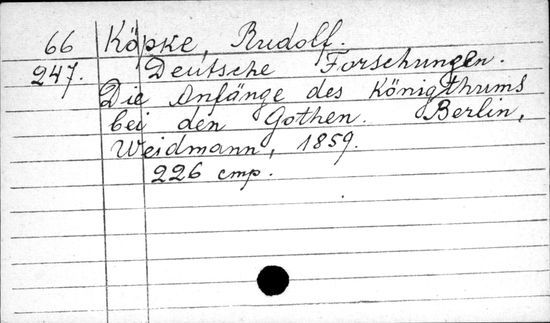 66 Köpke, Rudolf.
247. Deutsche Forschungen.
Die Anfänge des Königthums
bei den Gothen. Berlin,
Weidmann, 1859.
226 стр.